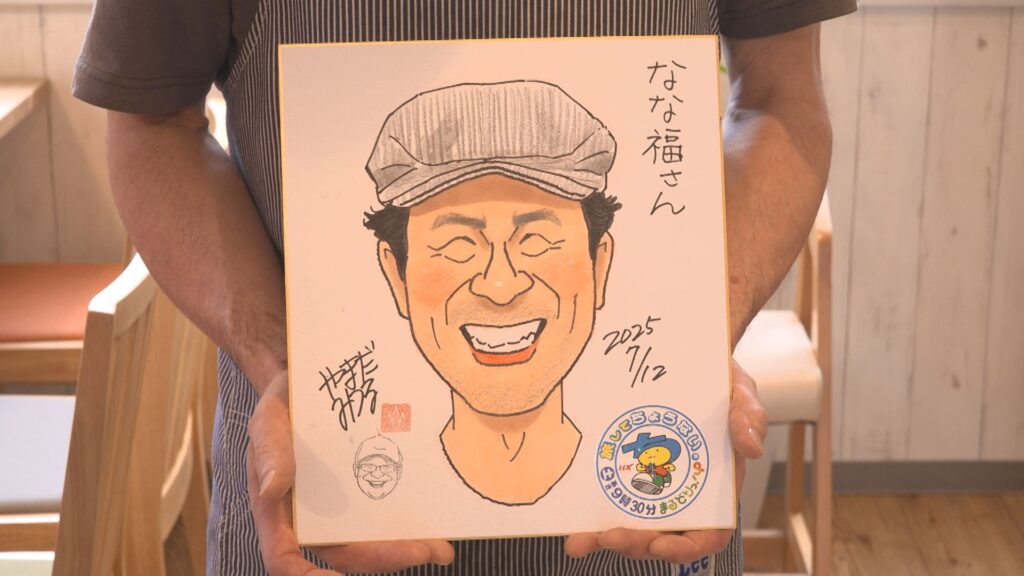 なな福さん
2025
7/12
やまだ
みつる
旅してちょうだい。
UX
9時30分 まるどりっ!UP